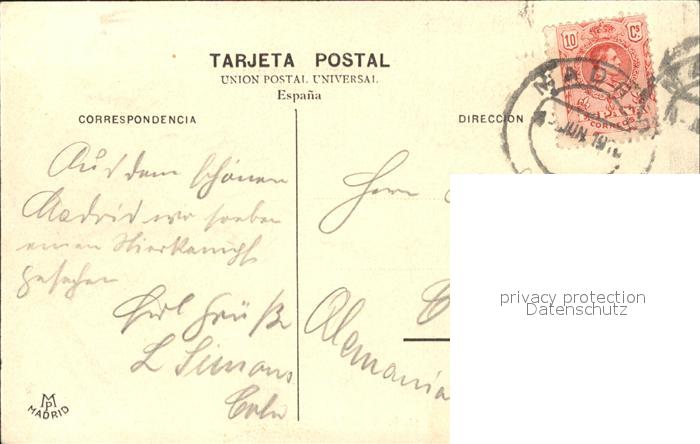 TARJETA POSTAL
UNION POSTAL UNIVERSAL
España
CORRESPONDENCIA
DIRECCION
10 Cs
CORREOS
MADRID
JUN
Aus dem schönen
Madrid wo soeben
einen Stierkampf
gesehen
Grüße
L Simons
Cöln
Herrn
Alemania
MP
MADRID
privacy protection
Datenschutz